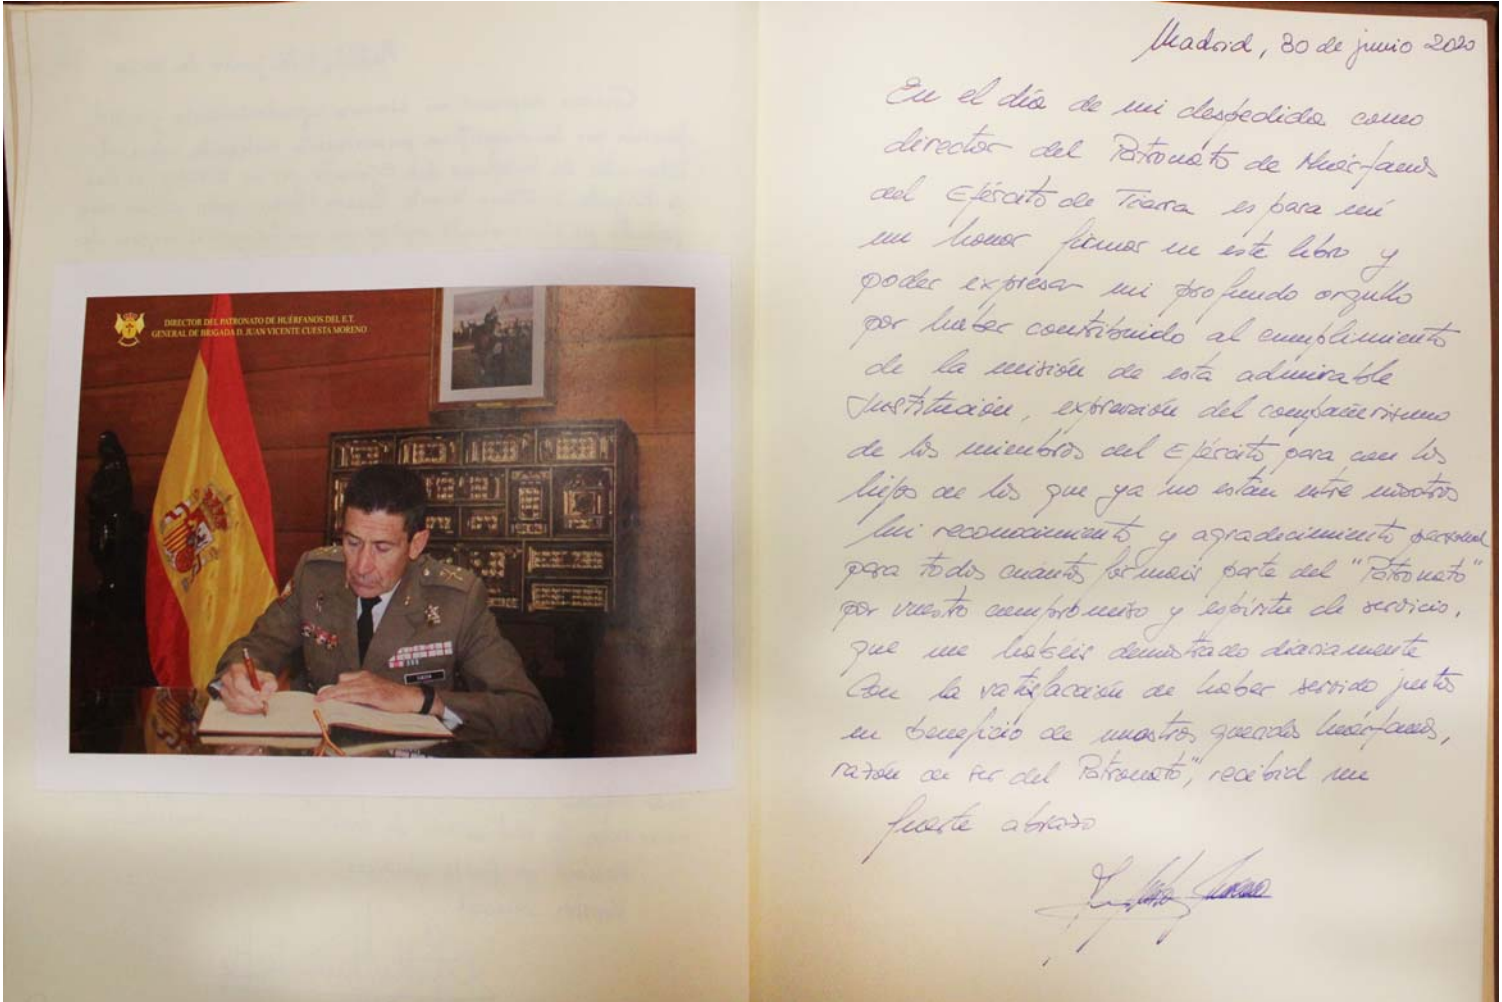 DIRECTOR DEL PATRONATO DE HUÉRFANOS DEL E.T.
GENERAL DE BRIGADA D. JUAN VICENTE CUESTA MORENO
Madrid, 30 de junio 2020
En el día de mi despedida como
director del Patronato de Huérfanos
del Ejército de Tierra es para mí
un honor firmar en este libro y
poder expresar mi profundo orgullo
por haber contribuido al cumplimiento
de la misión de esta admirable
Institución, expresión del compañerismo
de los miembros del Ejército para con los
hijos de los que ya no están entre nosotros
Mi reconocimiento y agradecimiento personal
para todos cuantos formáis parte del "Patronato"
por vuestro compromiso y espíritu de servicio,
que me habéis demostrado diariamente
Con la satisfacción de haber servido juntos
en beneficio de nuestros queridos huérfanos,
razón de ser del Patronato", recibid un
fuerte abrazo